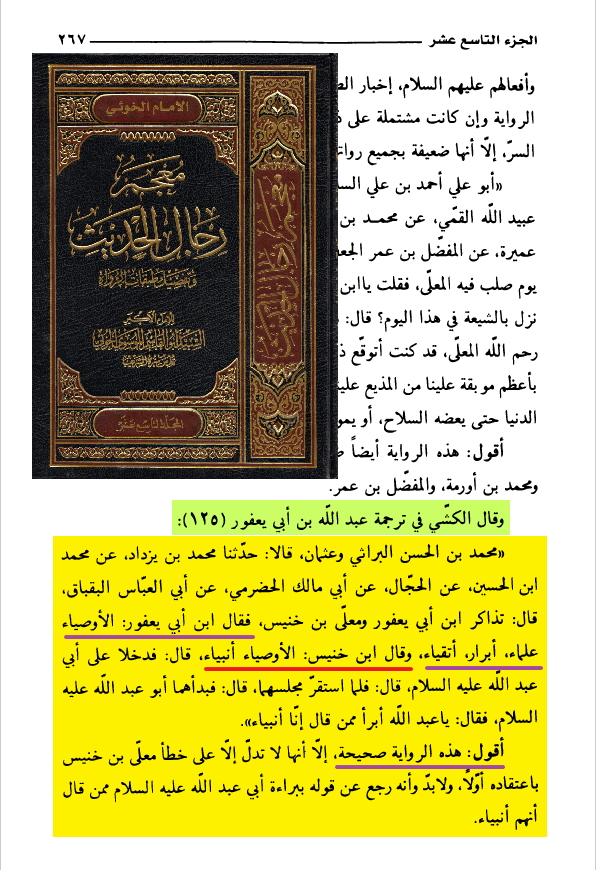 الجزء التاسع عشر ٢٦٧
وأفعالهم عليهم السلام، إخبار
الرواية وإن كانت مشتملة على
السرّ، إلّا أنها ضعيفة بجميع
«أبو علي أحمد بن علي
عبيد الله القمّي، عن محمد بن
عميرة، عن المفضّل بن عمر
يوم صلب فيه المعلّى، فقلت
نزل بالشيعة في هذا اليوم؟ قال:
رحم الله المعلّى، قد كنت أتوقّع
بأعظم موبقة علينا من المذيع
الدنيا حتى يعضه السلاح، أو
أقول: هذه الرواية أيضاً
ومحمد بن أورمة، والمفضّل بن عمر.
الامام الخوئي
معجم
رجال الحديث
وتفصيل طبقات الرواة
للإمام الأكبر
السيد أبو القاسم الموسوي الخوئي
المجلد التاسع عشر
معجم رجال الحديث
وقال الكشّي في ترجمة عبد الله بن أبي يعفور (١٢٥):
«محمد بن الحسن البراثي وعثمان، قالا: حدّثنا محمد بن يزداد، عن محمد
ابن الحسين، عن الحجّال، عن أبي مالك الحضرمي، عن أبي العبّاس البقباق،
قال: تذاكر ابن أبي يعفور ومعلّى بن خنيس، فقال ابن أبي يعفور: الأوصياء
علماء، أبرار، أتقياء، وقال ابن خنيس: الأوصياء أنبياء، قال: فدخلا على أبي
عبد الله عليه السلام، قال: فلما استقرّ مجلسهما، قال: فبدأهما أبو عبد الله عليه
السلام، فقال: ياعبد الله أبرأ ممن قال إنّا أنبياء».
أقول: هذه الرواية صحيحة، إلّا أنها لا تدلّ إلّا على خطأ معلّى بن خنيس
باعتقاده أوّلاً، ولابدّ وأنه رجع عن قوله ببراءة أبي عبد الله عليه السلام ممن قال
أنهم أنبياء.